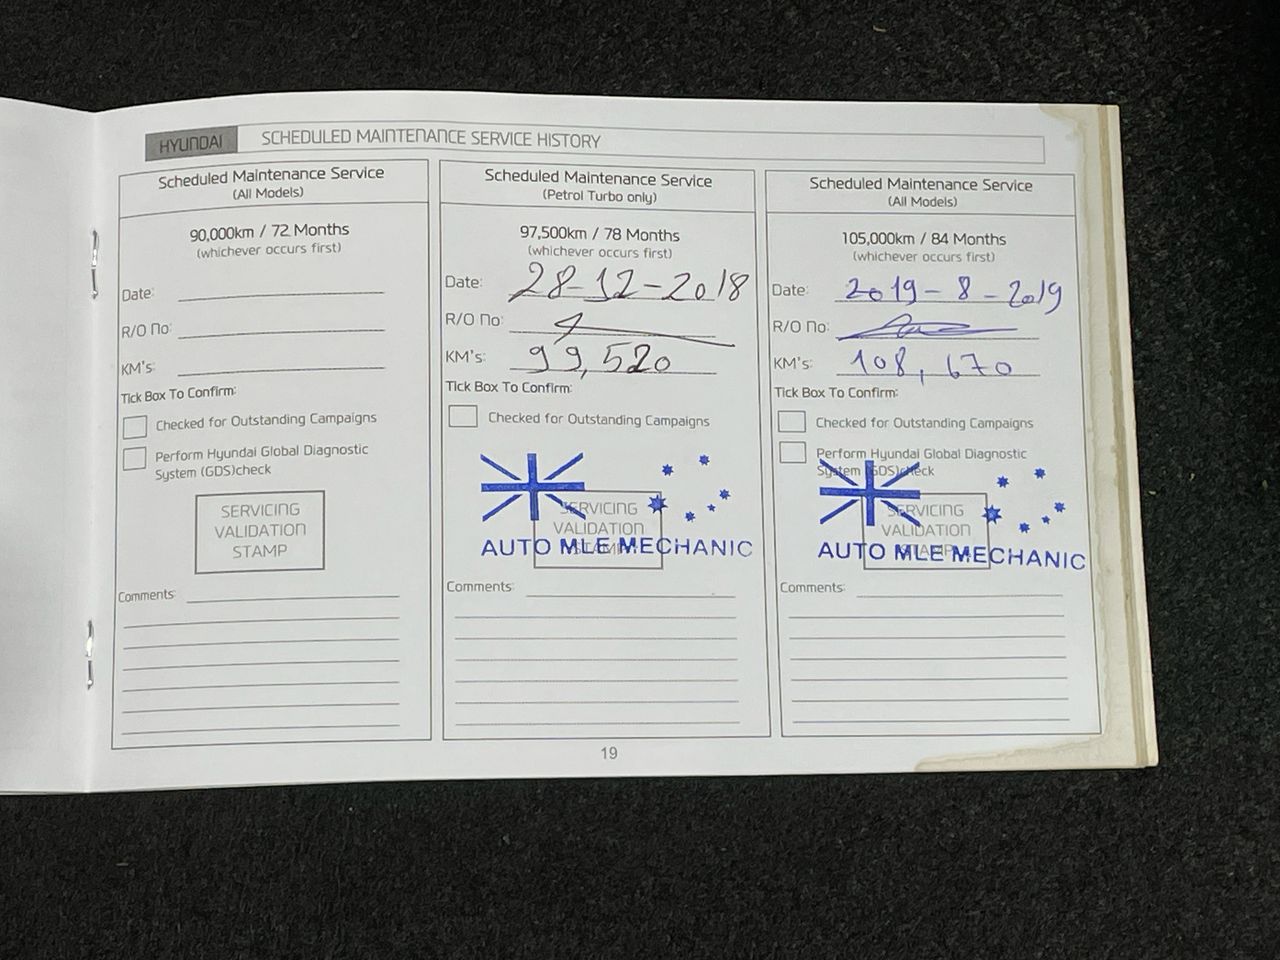 HYUNDAI
SCHEDULED MAINTENANCE SERVICE HISTORY
Scheduled Maintenance Service
(All Models)
90,000km / 72 Months
(whichever occurs first)
Date:
R/O No:
KM's:
Tick Box To Confirm:
Checked for Outstanding Campaigns
Perform Hyundai Global Diagnostic
System (GDS)check
SERVICING
VALIDATION
STAMP
Comments:
Scheduled Maintenance Service
(Petrol Turbo only)
97,500km / 78 Months
(whichever occurs first)
Date: 28-12-2018
R/O No:
KM's: 99,520
Tick Box To Confirm:
Checked for Outstanding Campaigns
SERVICING
VALIDATION
STAMP
AUTO MLE MECHANIC
Comments:
Scheduled Maintenance Service
(All Models)
105,000km / 84 Months
(whichever occurs first)
Date: 2019-8-2019
R/O No:
KM's: 108,670
Tick Box To Confirm:
Checked for Outstanding Campaigns
Perform Hyundai Global Diagnostic
System (GDS)check
SERVICING
VALIDATION
STAMP
AUTO MLE MECHANIC
Comments:
19